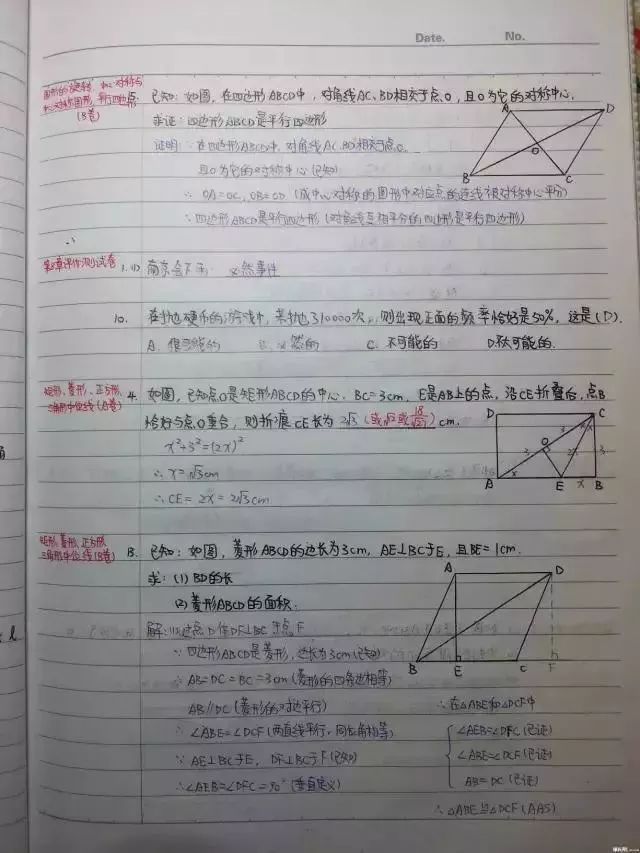 Date. No.
图形的旋转、中心对称与
中心对称图形、平行四边形
(B卷)
已知:如图,在四边形ABCD中,对角线AC、BD相交于点O,且O为它的对称中心.
求证:四边形ABCD是平行四边形
证明:∵在四边形ABCD中,对角线AC、BD相交于点O
且O为它的对称中心(已知)
∴OA=OC,OB=OD(成中心对称的图形中对应点的连线被对称中心平分)
∴四边形ABCD是平行四边形(对角线互相平分的四边形是平行四边形)
A D
O
B C
第8章评价测试卷 1.(1) 南京会下雨 必然事件
10. 在抛硬币的游戏中,若抛10000次,则出现正面的频率恰好是50%,这是(D).
A.很可能的 B.必然的 C.不可能的 D.不太可能的.
矩形、菱形、正方形、
三角形中位线(A卷)
4. 如图,已知点O是矩形ABCD的中心,BC=3cm,E是AB上的点,沿CE折叠后,点B
恰好与点O重合,则折痕CE长为2√3 cm.
x²+3²=(2x)²
∴x=√3cm
∴CE=2x=2√3cm
D C
O
3 3
2x
A E x B
矩形、菱形、正方形、
三角形中位线(B卷)
13. 已知:如图,菱形ABCD的边长为3cm,AE⊥BC于E,且BE=1cm.
求:(1)BD的长
(2)菱形ABCD的面积.
解:(1)过点D作DF⊥BC于点F
∵四边形ABCD是菱形,边长为3cm(已知)
∴AB=DC=BC=3cm(菱形的四条边相等)
AB∥DC(菱形的对边平行)
∴∠ABE=∠DCF(两直线平行,同位角相等)
∵AE⊥BC于E,DF⊥BC于F(已知)
∴∠AEB=∠DFC=90°(垂直定义)
A D
B E C F
∴在△ABE和△DCF中
∠AEB=∠DFC(已证)
∠ABE=∠DCF(已证)
AB=DC(已证)
∴△ABE≌△DCF(AAS)